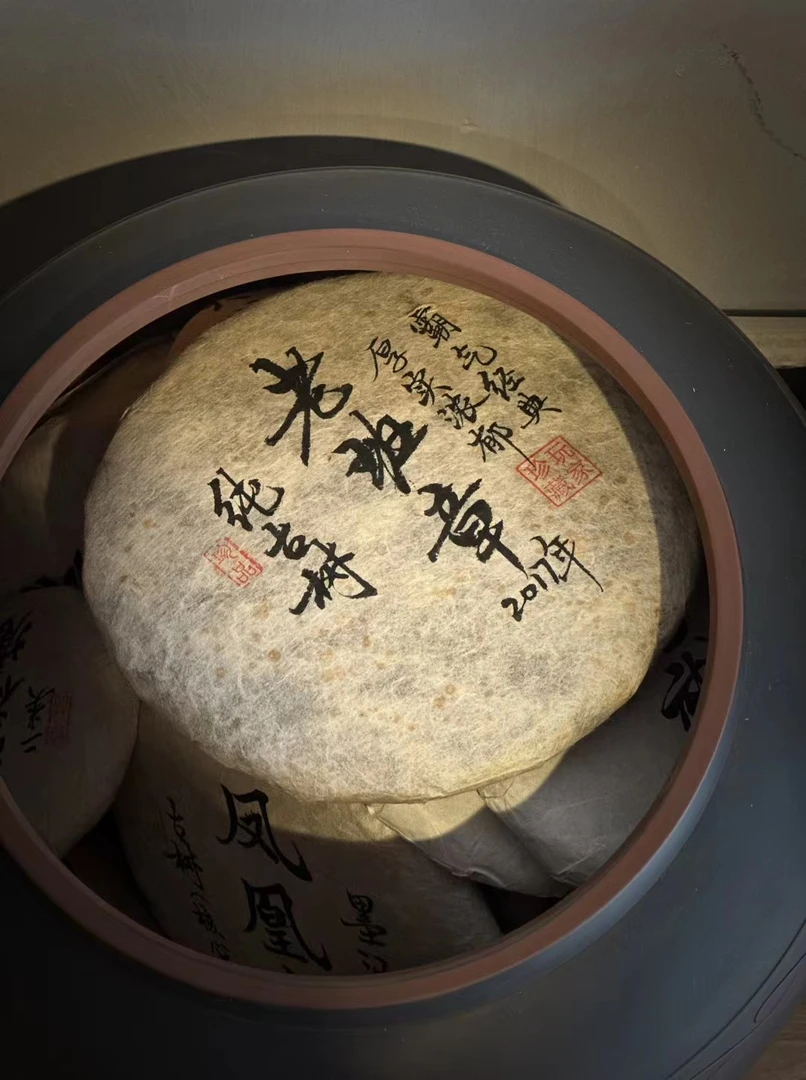 霸气经典
厚实浓郁
玩家
珍藏
老班章
2017年
纯古树
珍品
凤凰